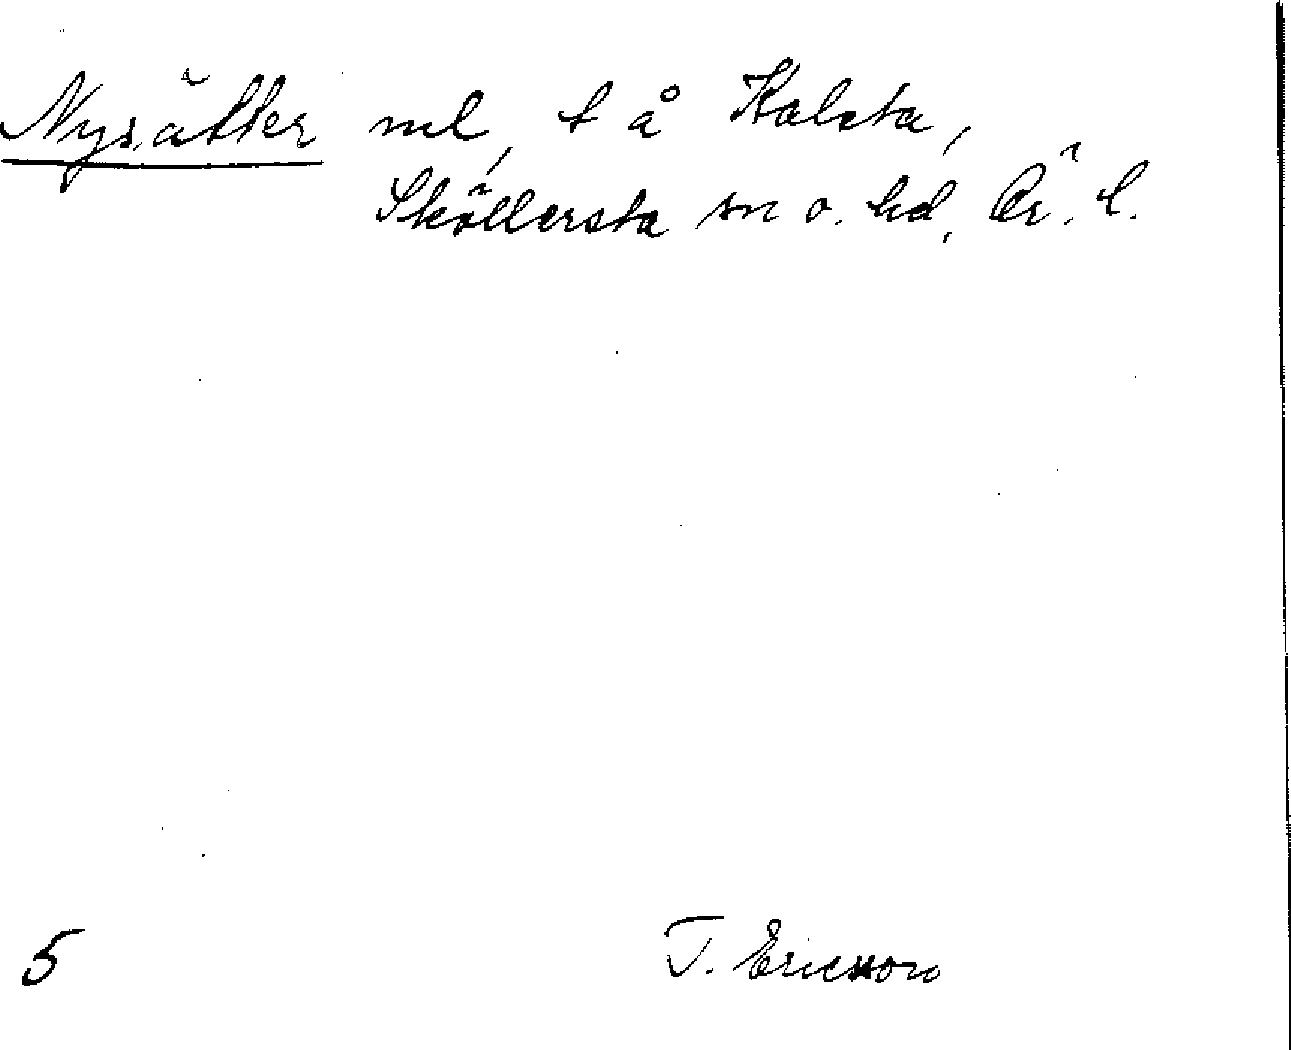 Nysätter ml, t å Kalsta,
Sköllersta sn o. hd, Ör. l.
5
T. Ericsson